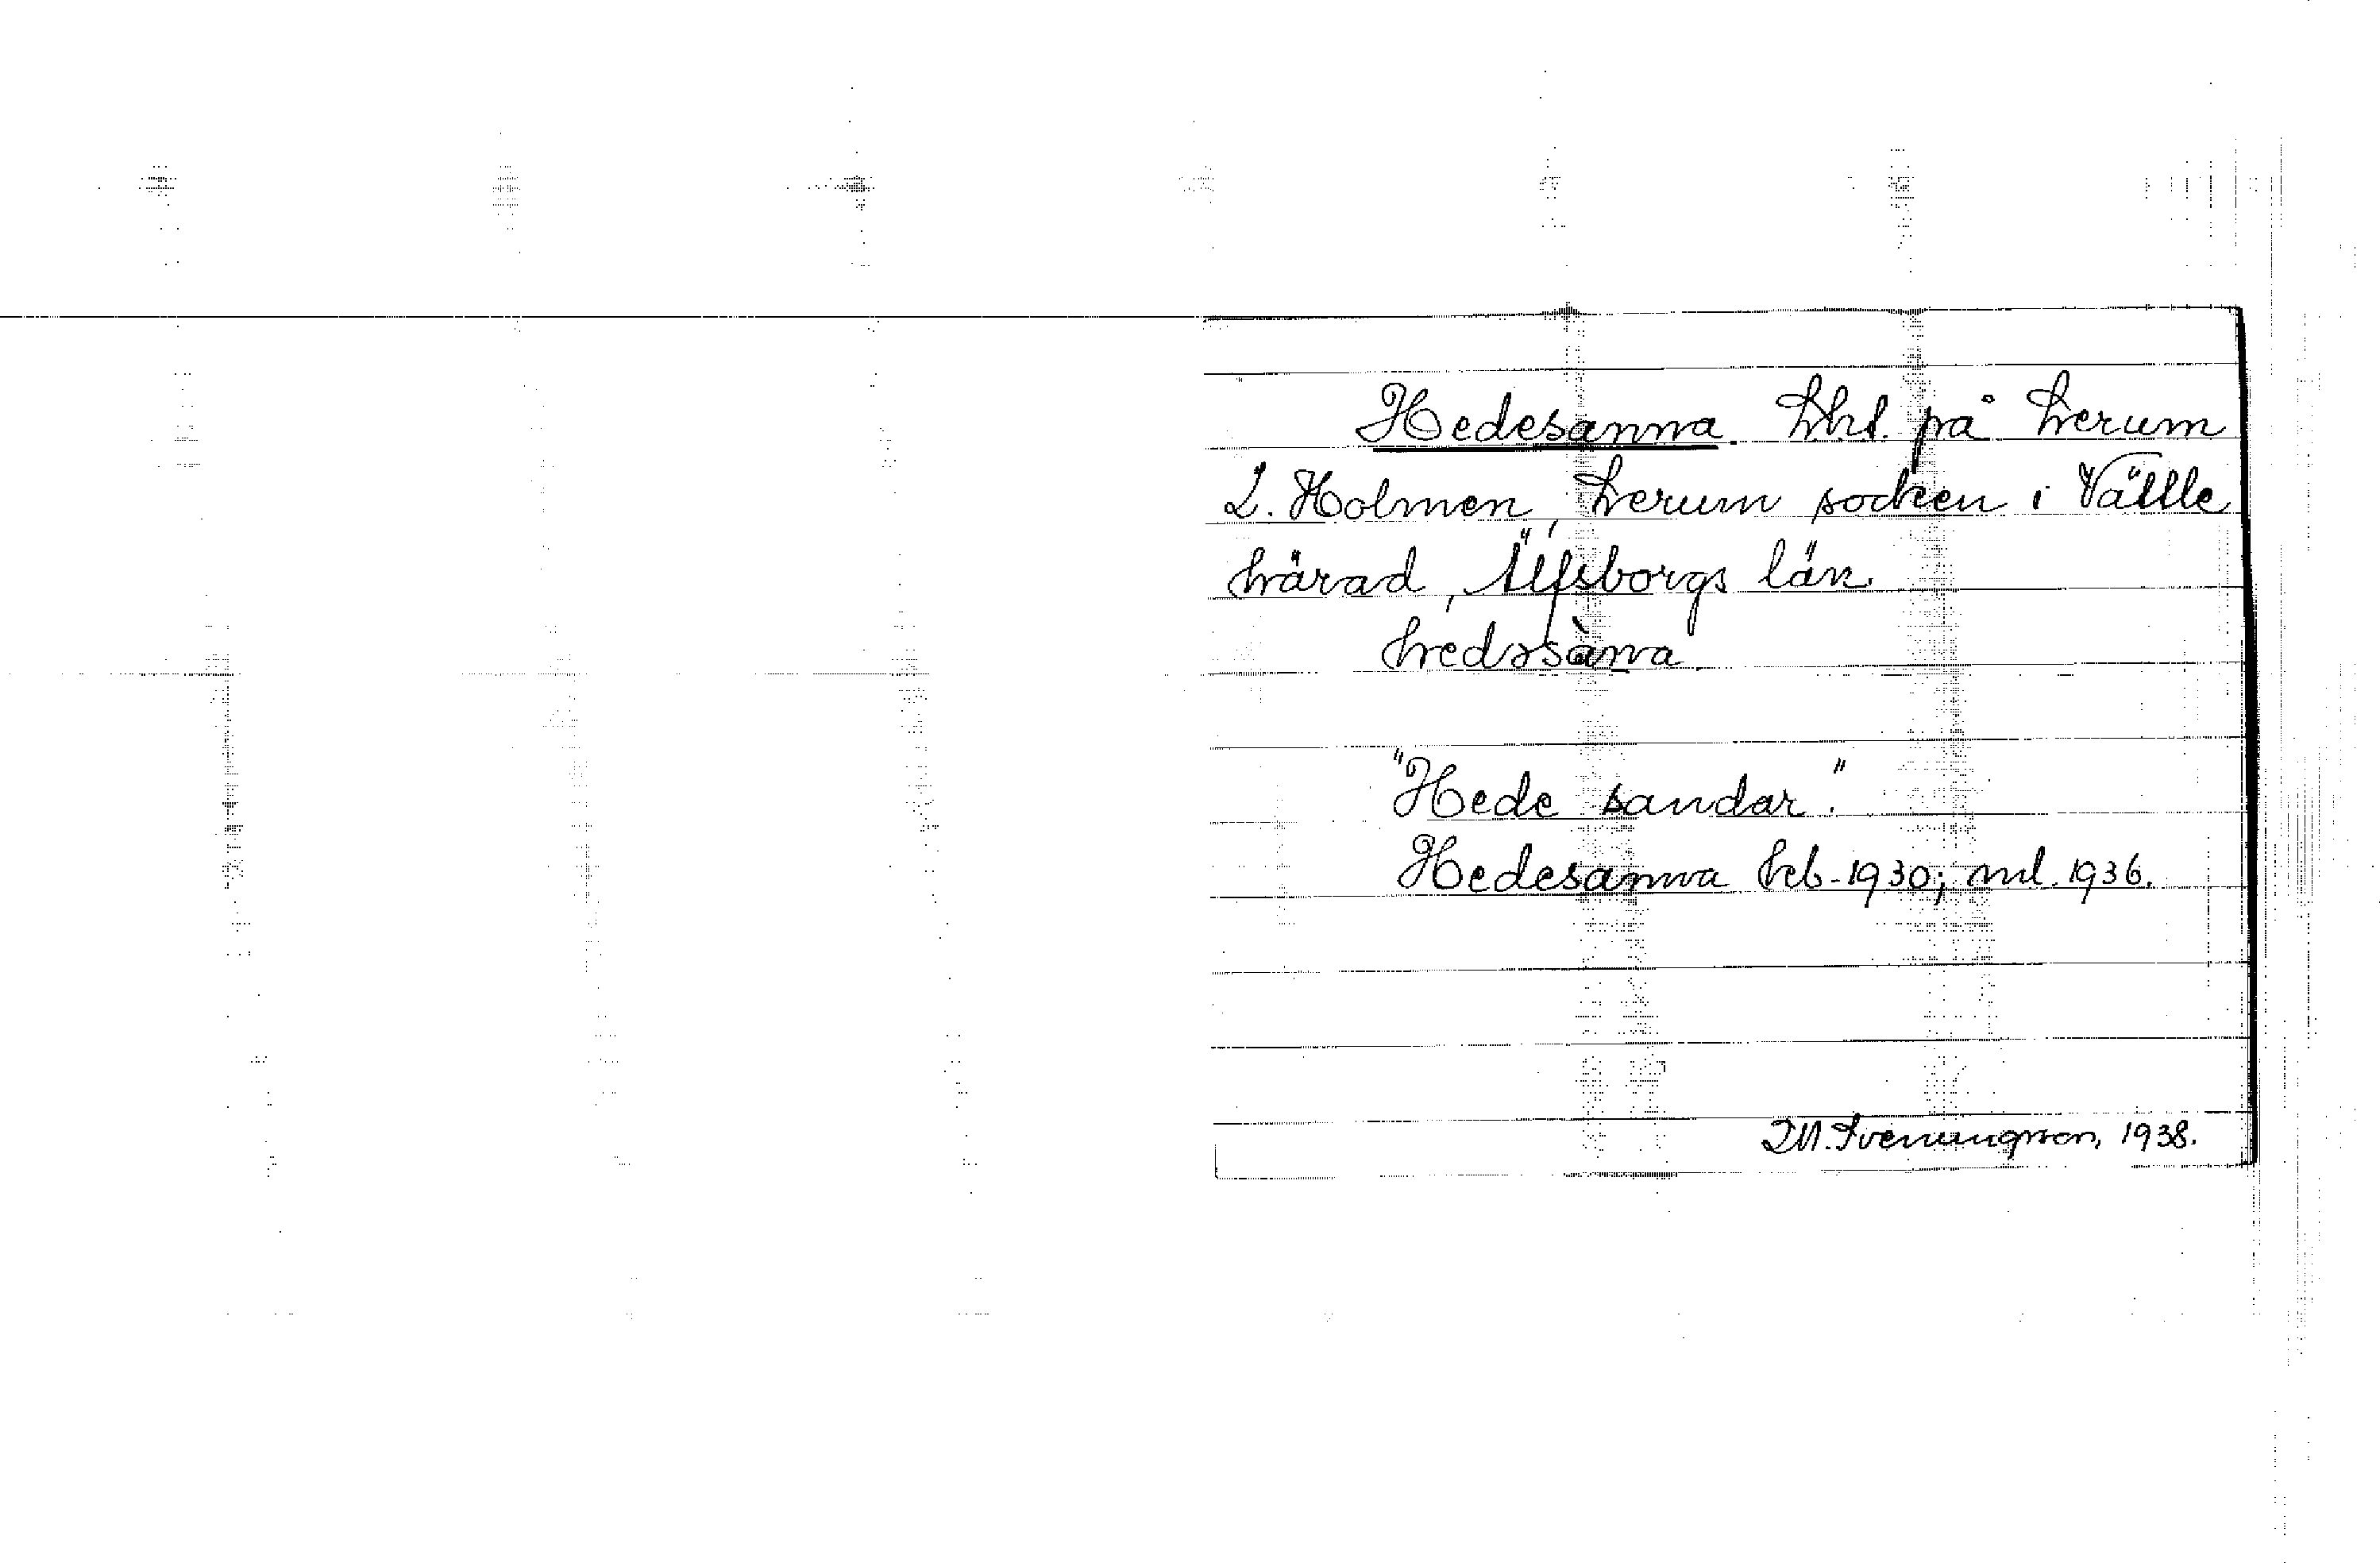 Hedesanna. Lht. på Lerum
Holmen, Lerum socken i Vättle
härad, Älfsborgs län.
hedəsàna
"Hede sandar."
Hedesanna 1930; ml. 1936.
Svenungsson, 1938.